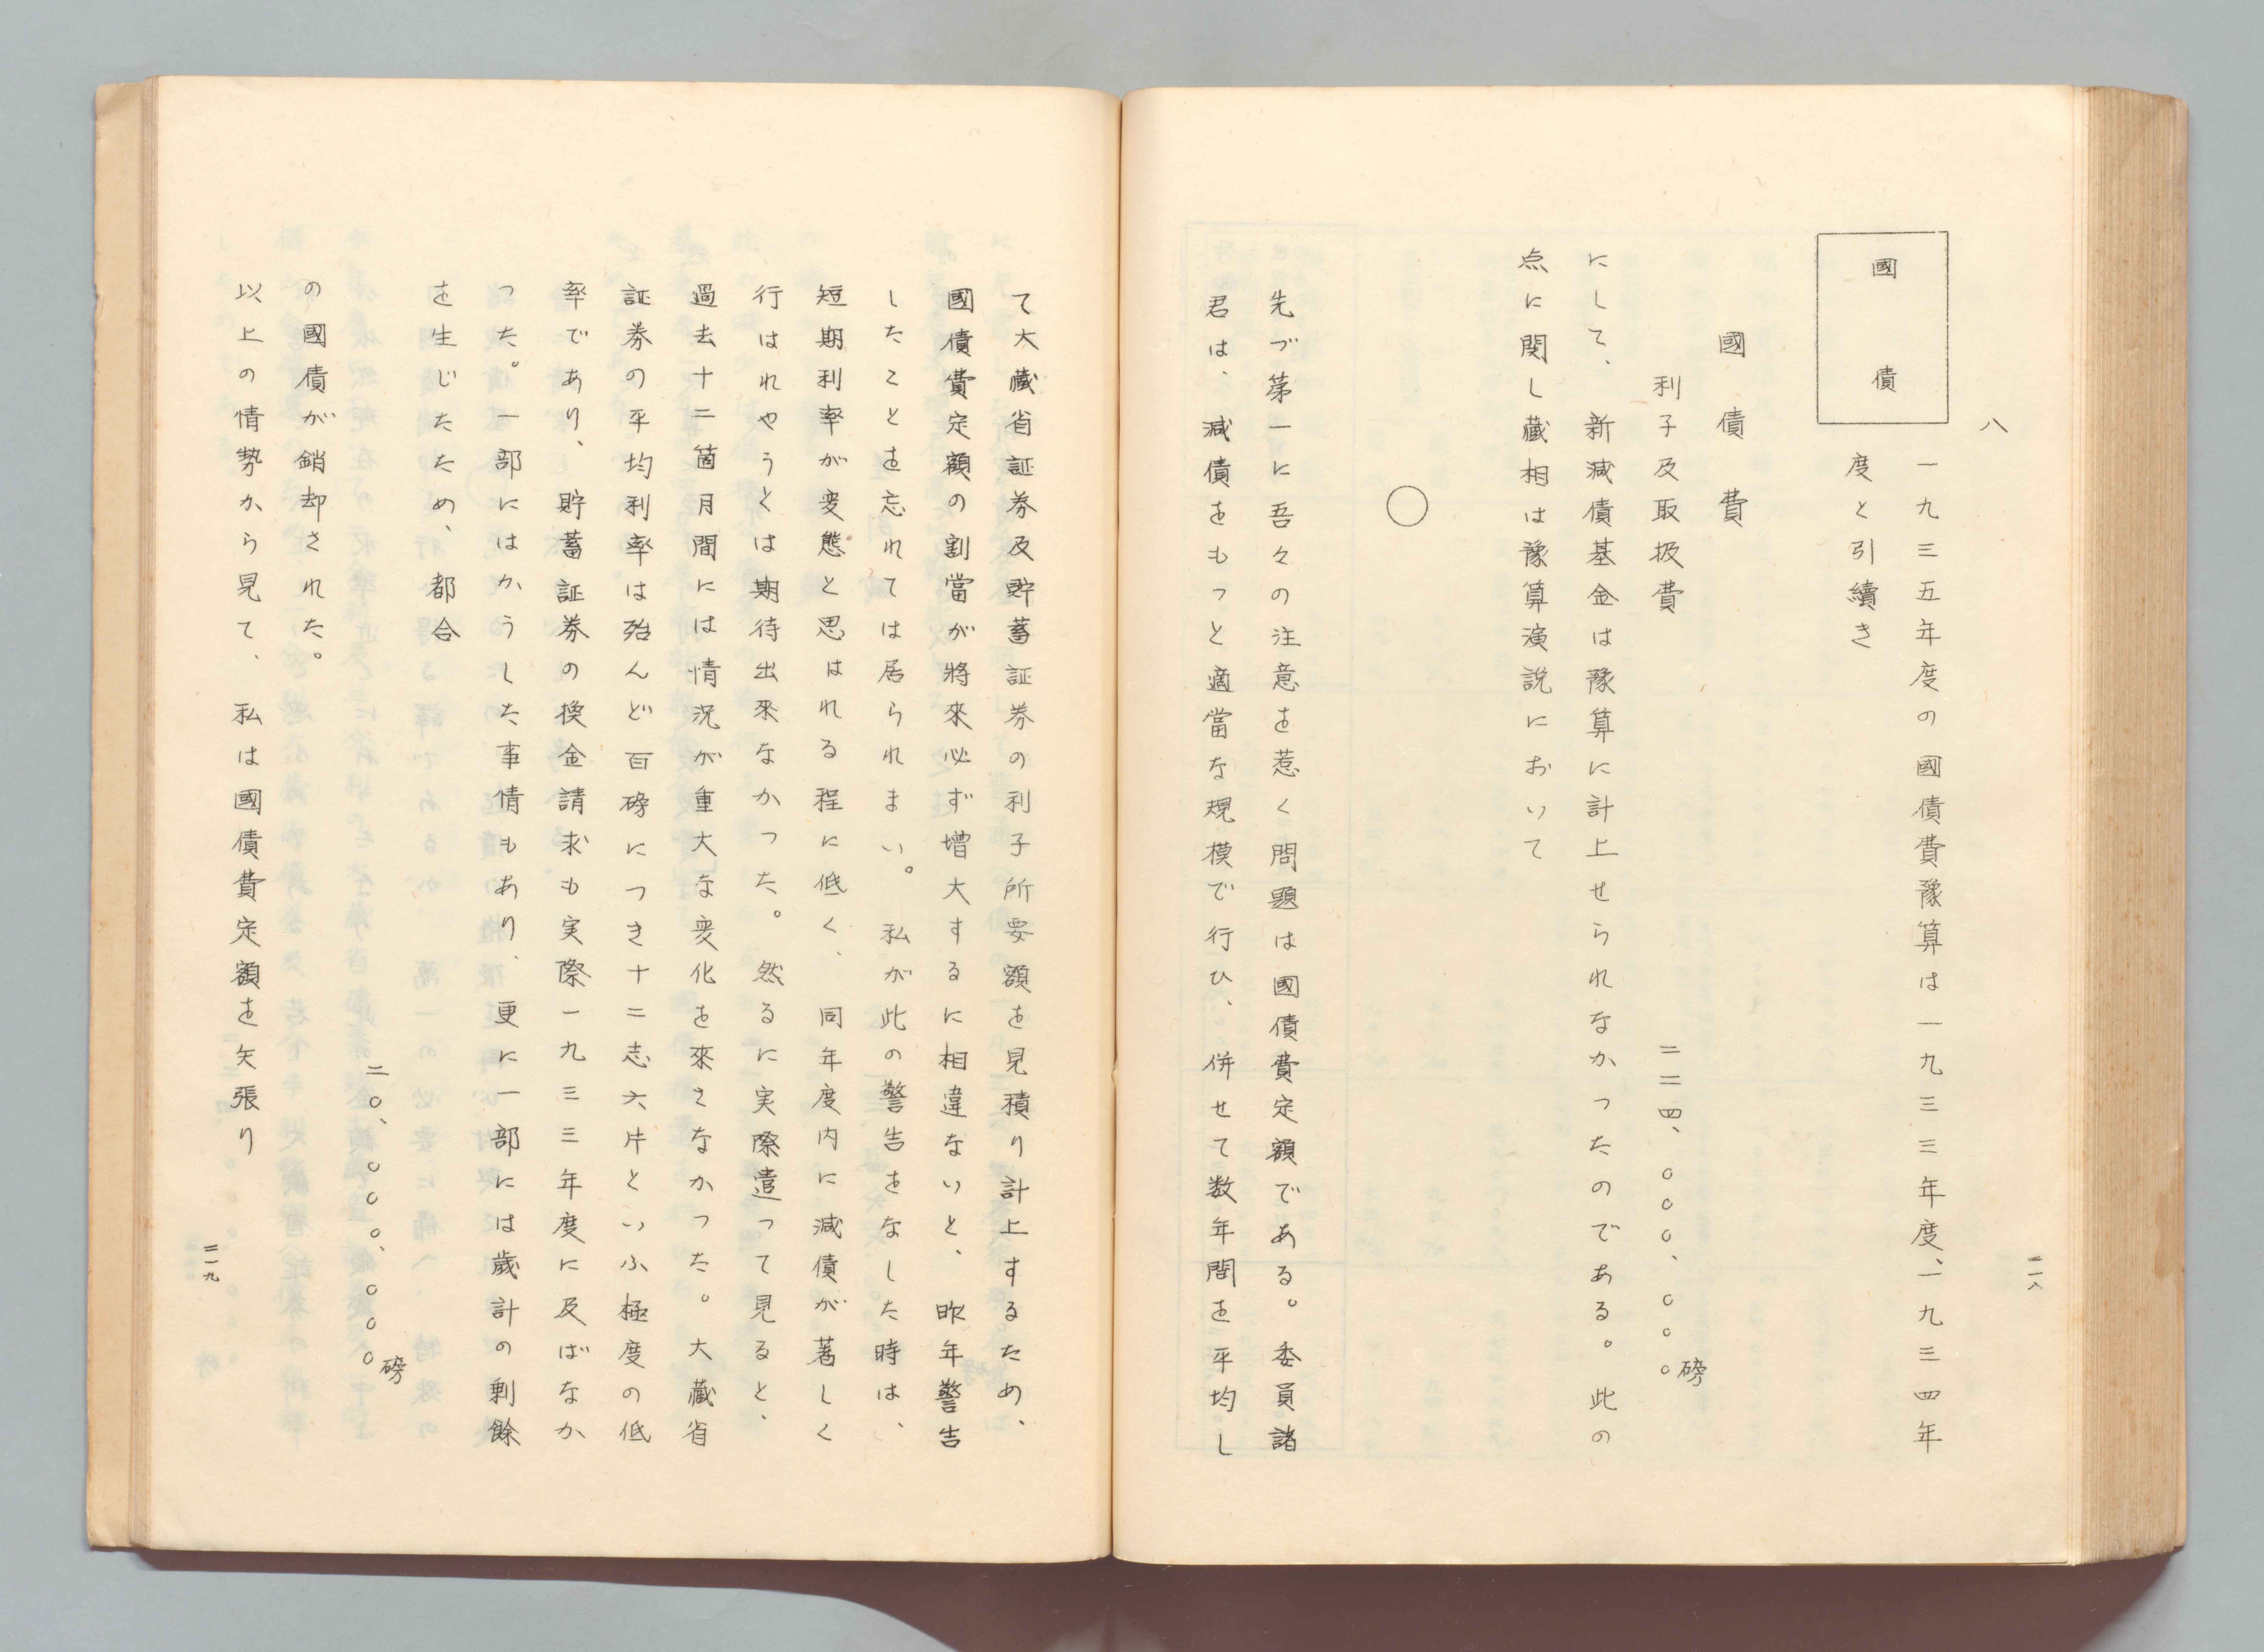 二一八
八
國債
一九三五年度の國債費豫算は一九三三年度、一九三四年
度と引續き
國債費
利子及取扱費
二二四、〇〇〇、〇〇〇磅
にして、新減債基金は豫算に計上せられなかったのである。此の
点に関し藏相は豫算演説において
〇
先づ第一に吾々の注意を惹く問題は國債費定額である。委員諸
君は、減債をもっと適當な規模で行ひ、併せて数年間を平均し
て大藏省証券及貯蓄証券の利子所要額を見積り計上するため、
國債費定額の割當が將來必ず増大するに相違ないと、昨年警告
したことを忘れては居られまい。私が此の警告をなした時は、
短期利率が変態と思はれる程に低く、同年度内に減債が著しく
行はれやうとは期待出來なかった。然るに実際遣って見ると、
過去十二箇月間には情況が重大な変化を來さなかった。大藏省
証券の平均利率は殆んど百磅につき十二志六片といふ極度の低
率であり、貯蓄証券の換金請求も実際一九三三年度に及ばなか
った。一部にはかうした事情もあり、更に一部には歳計の剰餘
を生じたため、都合
二〇、〇〇〇、〇〇〇磅
の國債が銷却された。
以上の情勢から見て、私は國債費定額を矢張り
二一九